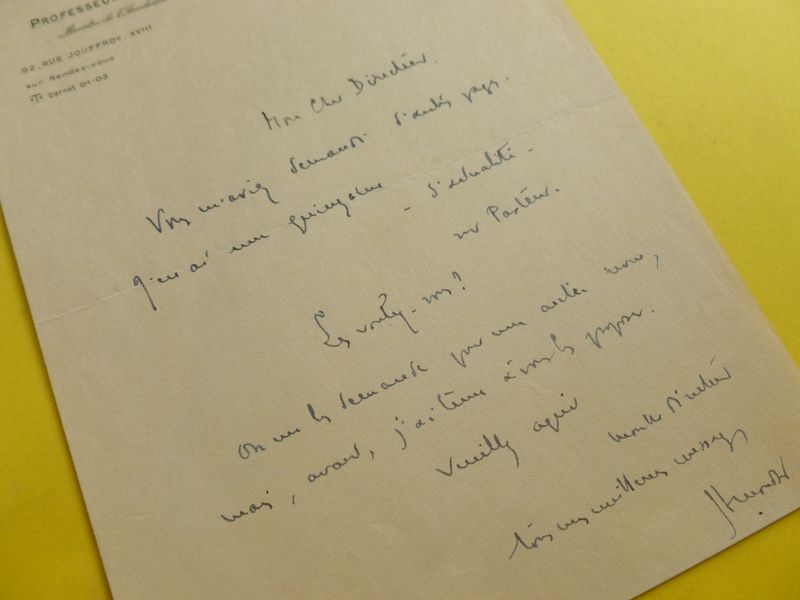 PROFESSEUR
Membre de l'Académie
92, RUE JOUFFROY, XVIII
sur Rendez-vous
Carnot 01-03
Mon Cher Directeur.
Vous m'aviez demandé d'autres pages.
J'en ai une quinzaine - d'actualité -
sur Pasteur.
Les voulez-vous?
On me les demande pour une autre revue,
mais, avant, j'ai tenu à vous les proposer.
Veuillez agréer Monsieur Directeur
tous mes meilleurs messages